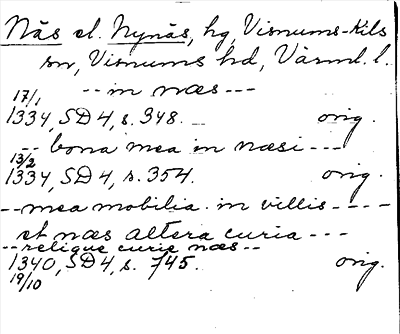 Näs el. Nynäs, hg, Visnums-Kils
sn, Visnums hd, Värml. l.
-- in næs ---
17/1
1334, SD 4, s. 348. orig.
-- bona mea in næsi ---
13/2
1334, SD 4, s. 354. orig.
-- mea mobilia in villis ----
et næs altera curia ---
-- relique curie næs --
1340, SD 4, s. 745. orig.
19/10